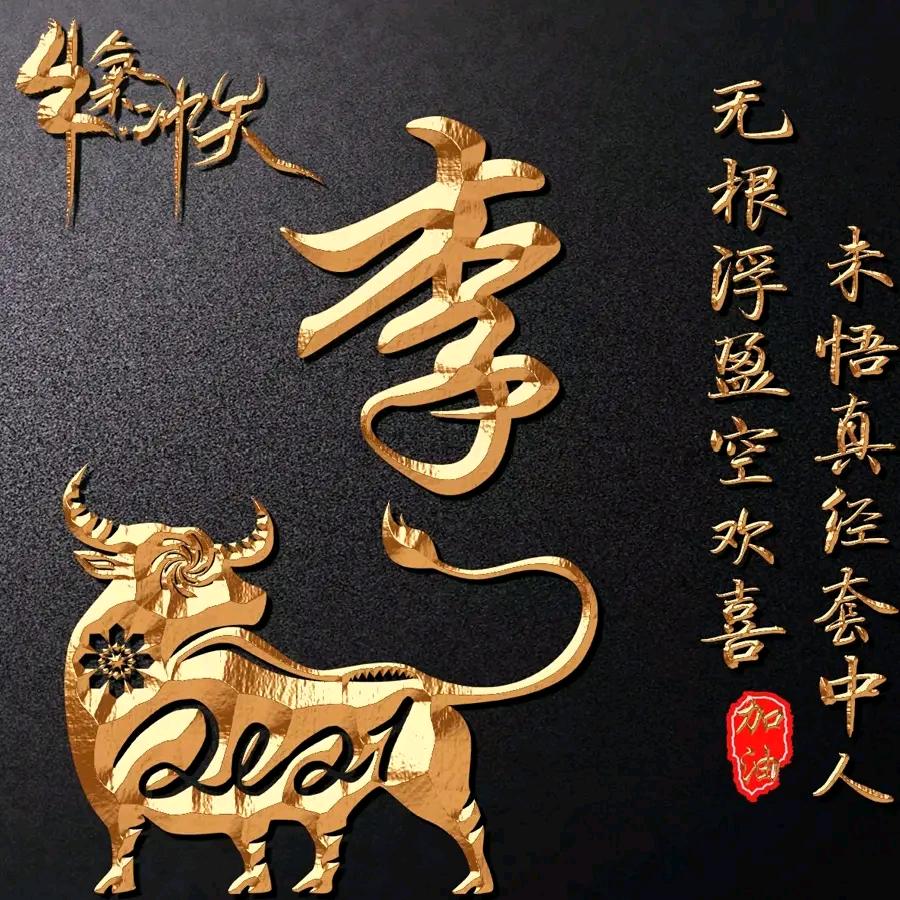 牛氣冲天
李
未悟真经套中人
无根浮盈空欢喜
加油
2021